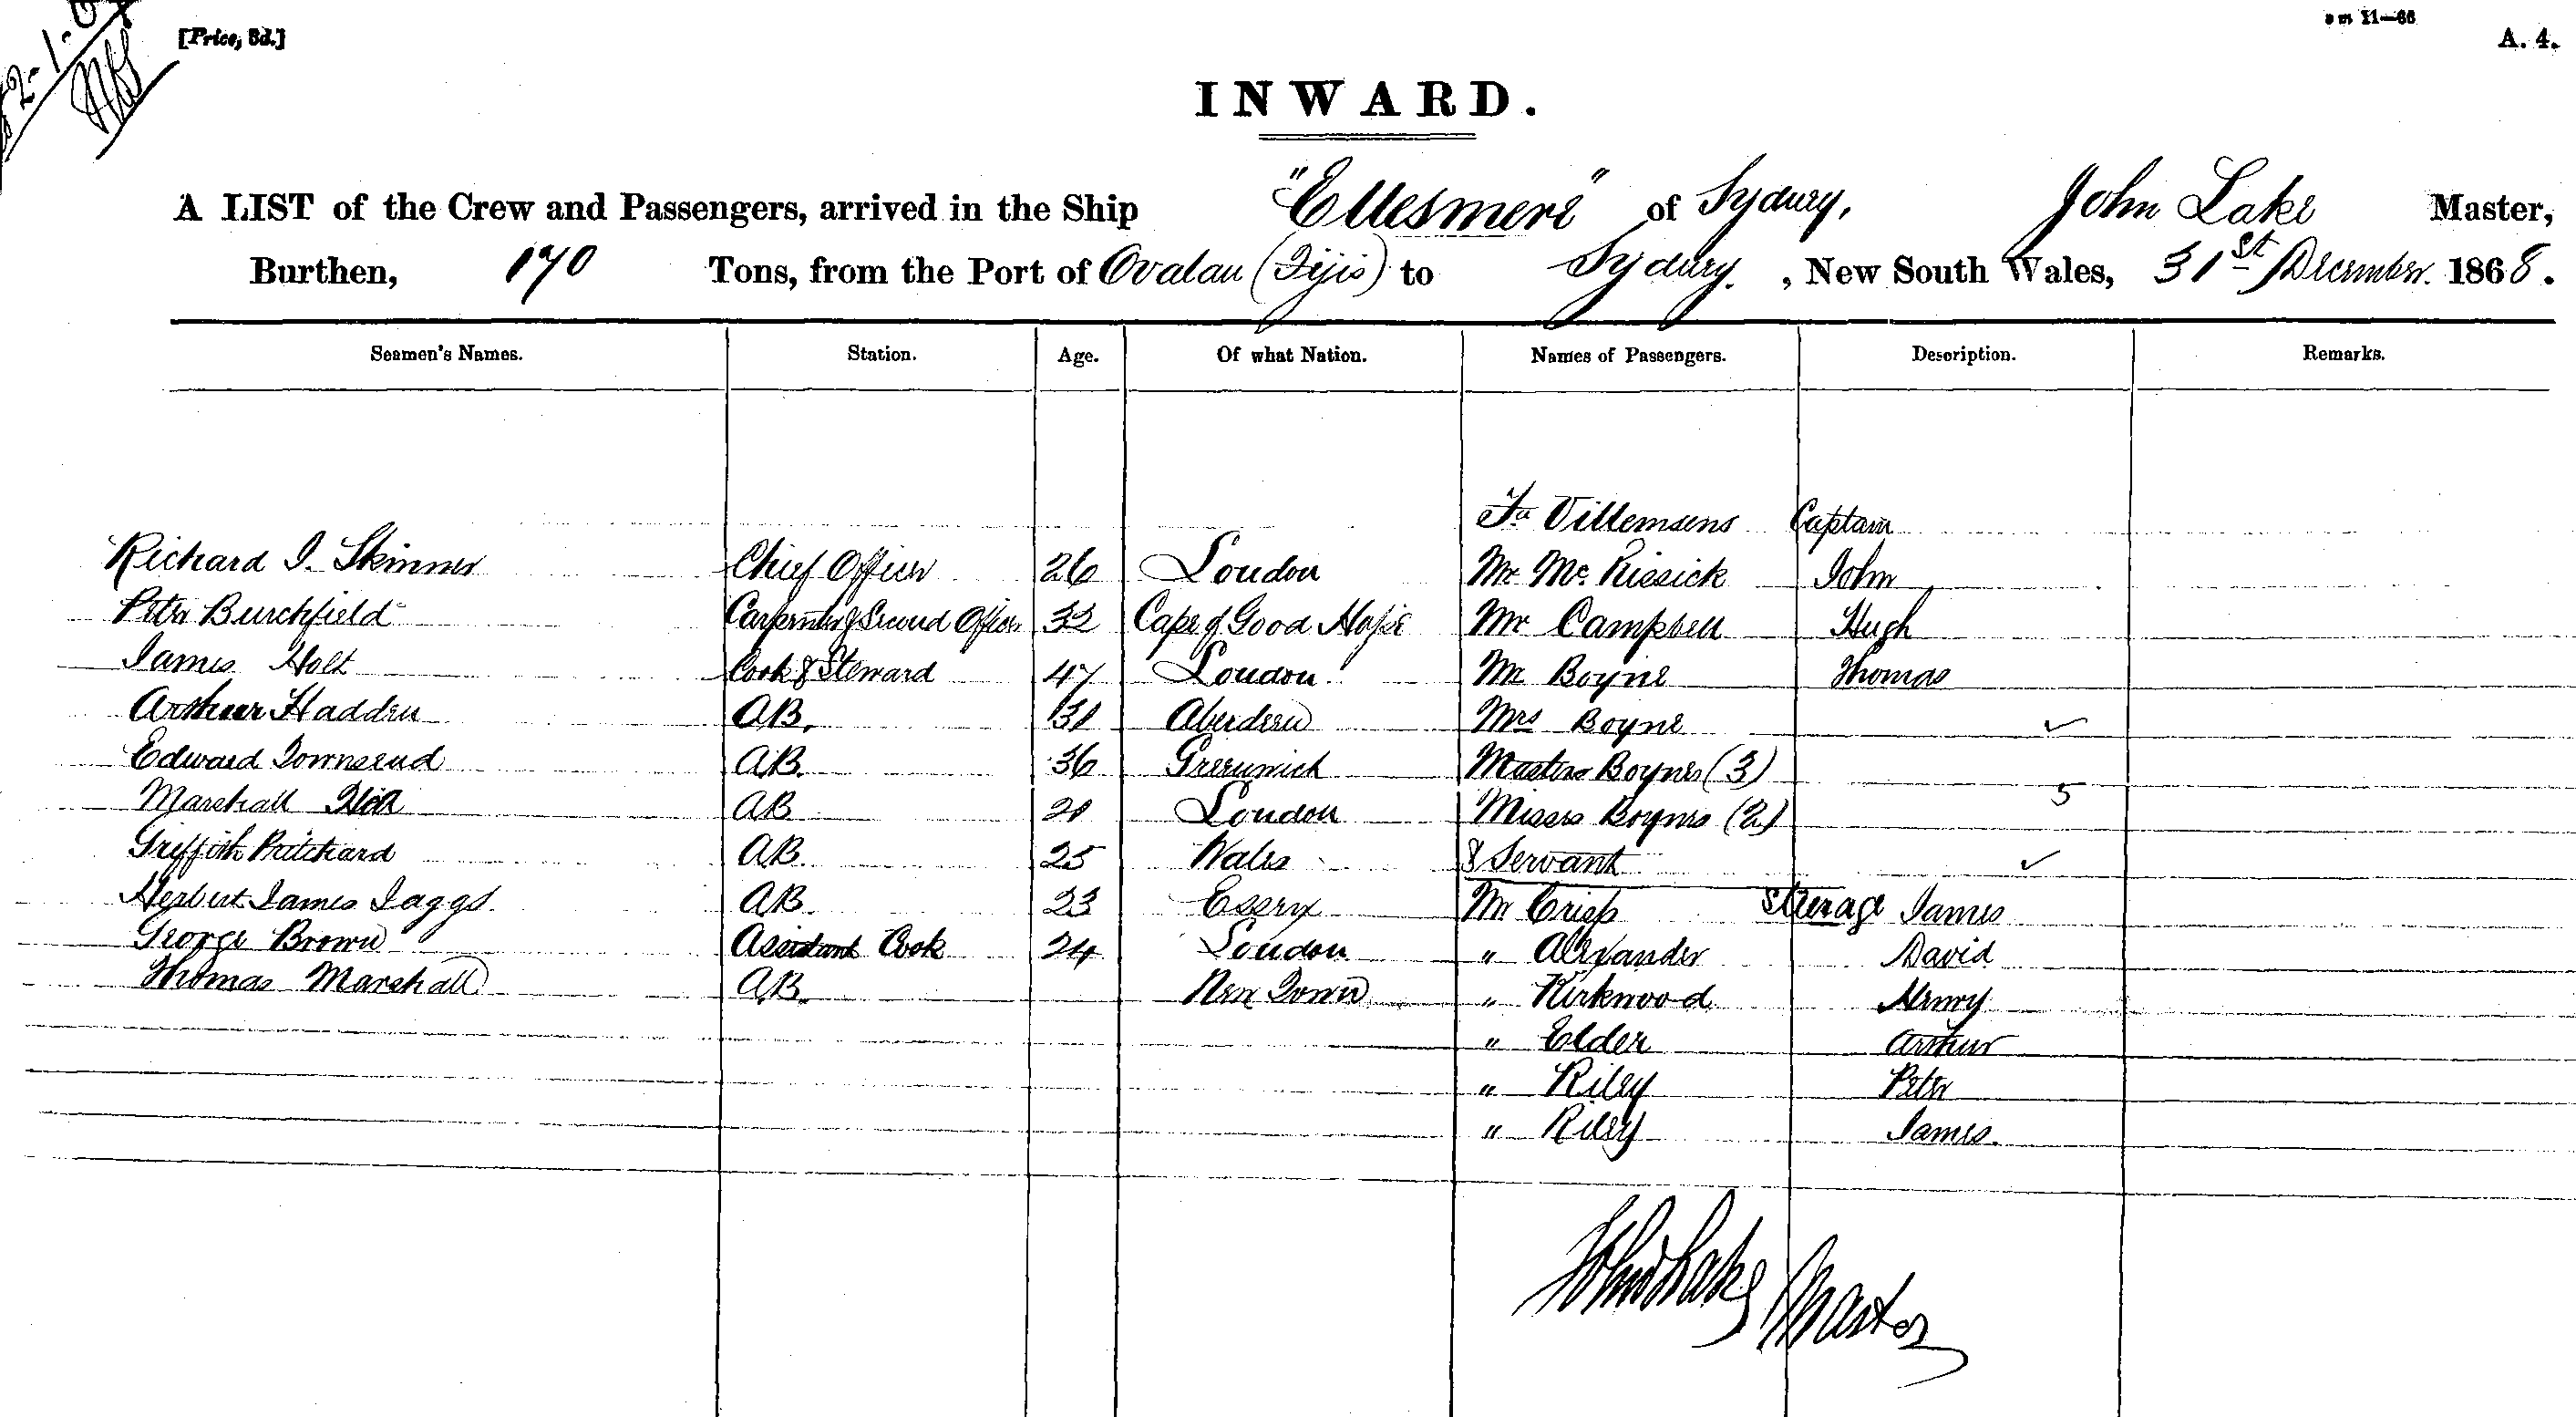 [Price, 3d.]
A. 4.
INWARD.
A LIST of the Crew and Passengers, arrived in the Ship "Ellesmere" of Sydney, John Lake Master,
Burthen, 170 Tons, from the Port of Ovalau (Fijis) to Sydney, New South Wales, 31st December 1868.
Seamen's Names. Station. Age. Of what Nation. Names of Passengers. Description. Remarks.
Villemsens Captain
Richard J. Skinner Chief Officer 26 London Mr Mc. Kissick John
Peter Burchfield Carpenter & Second Officer 32 Cape of Good Hope Mr Campbell Hugh
James Holt Cook & Steward 47 London Mr Boyne Thomas
Arthur Hadden AB. 31 Aberdeen Mrs Boyne ✓
Edward Townsend AB. 36 Greenwich Masters Boynes (3)
Marshall AB London Misses Boynes (2) 5
Griffith Pritchard AB. 25 Wales & Servant ✓
Herbert James Jaggs AB. 23 Essex Mr Crisp Steerage James
George Brown Assistant Cook 24 London " Alexander David
Thomas Marshall AB. New Town " Kirkwood Henry
" Elder Arthur
" Riley Peter
" Riley James
John Lake Master